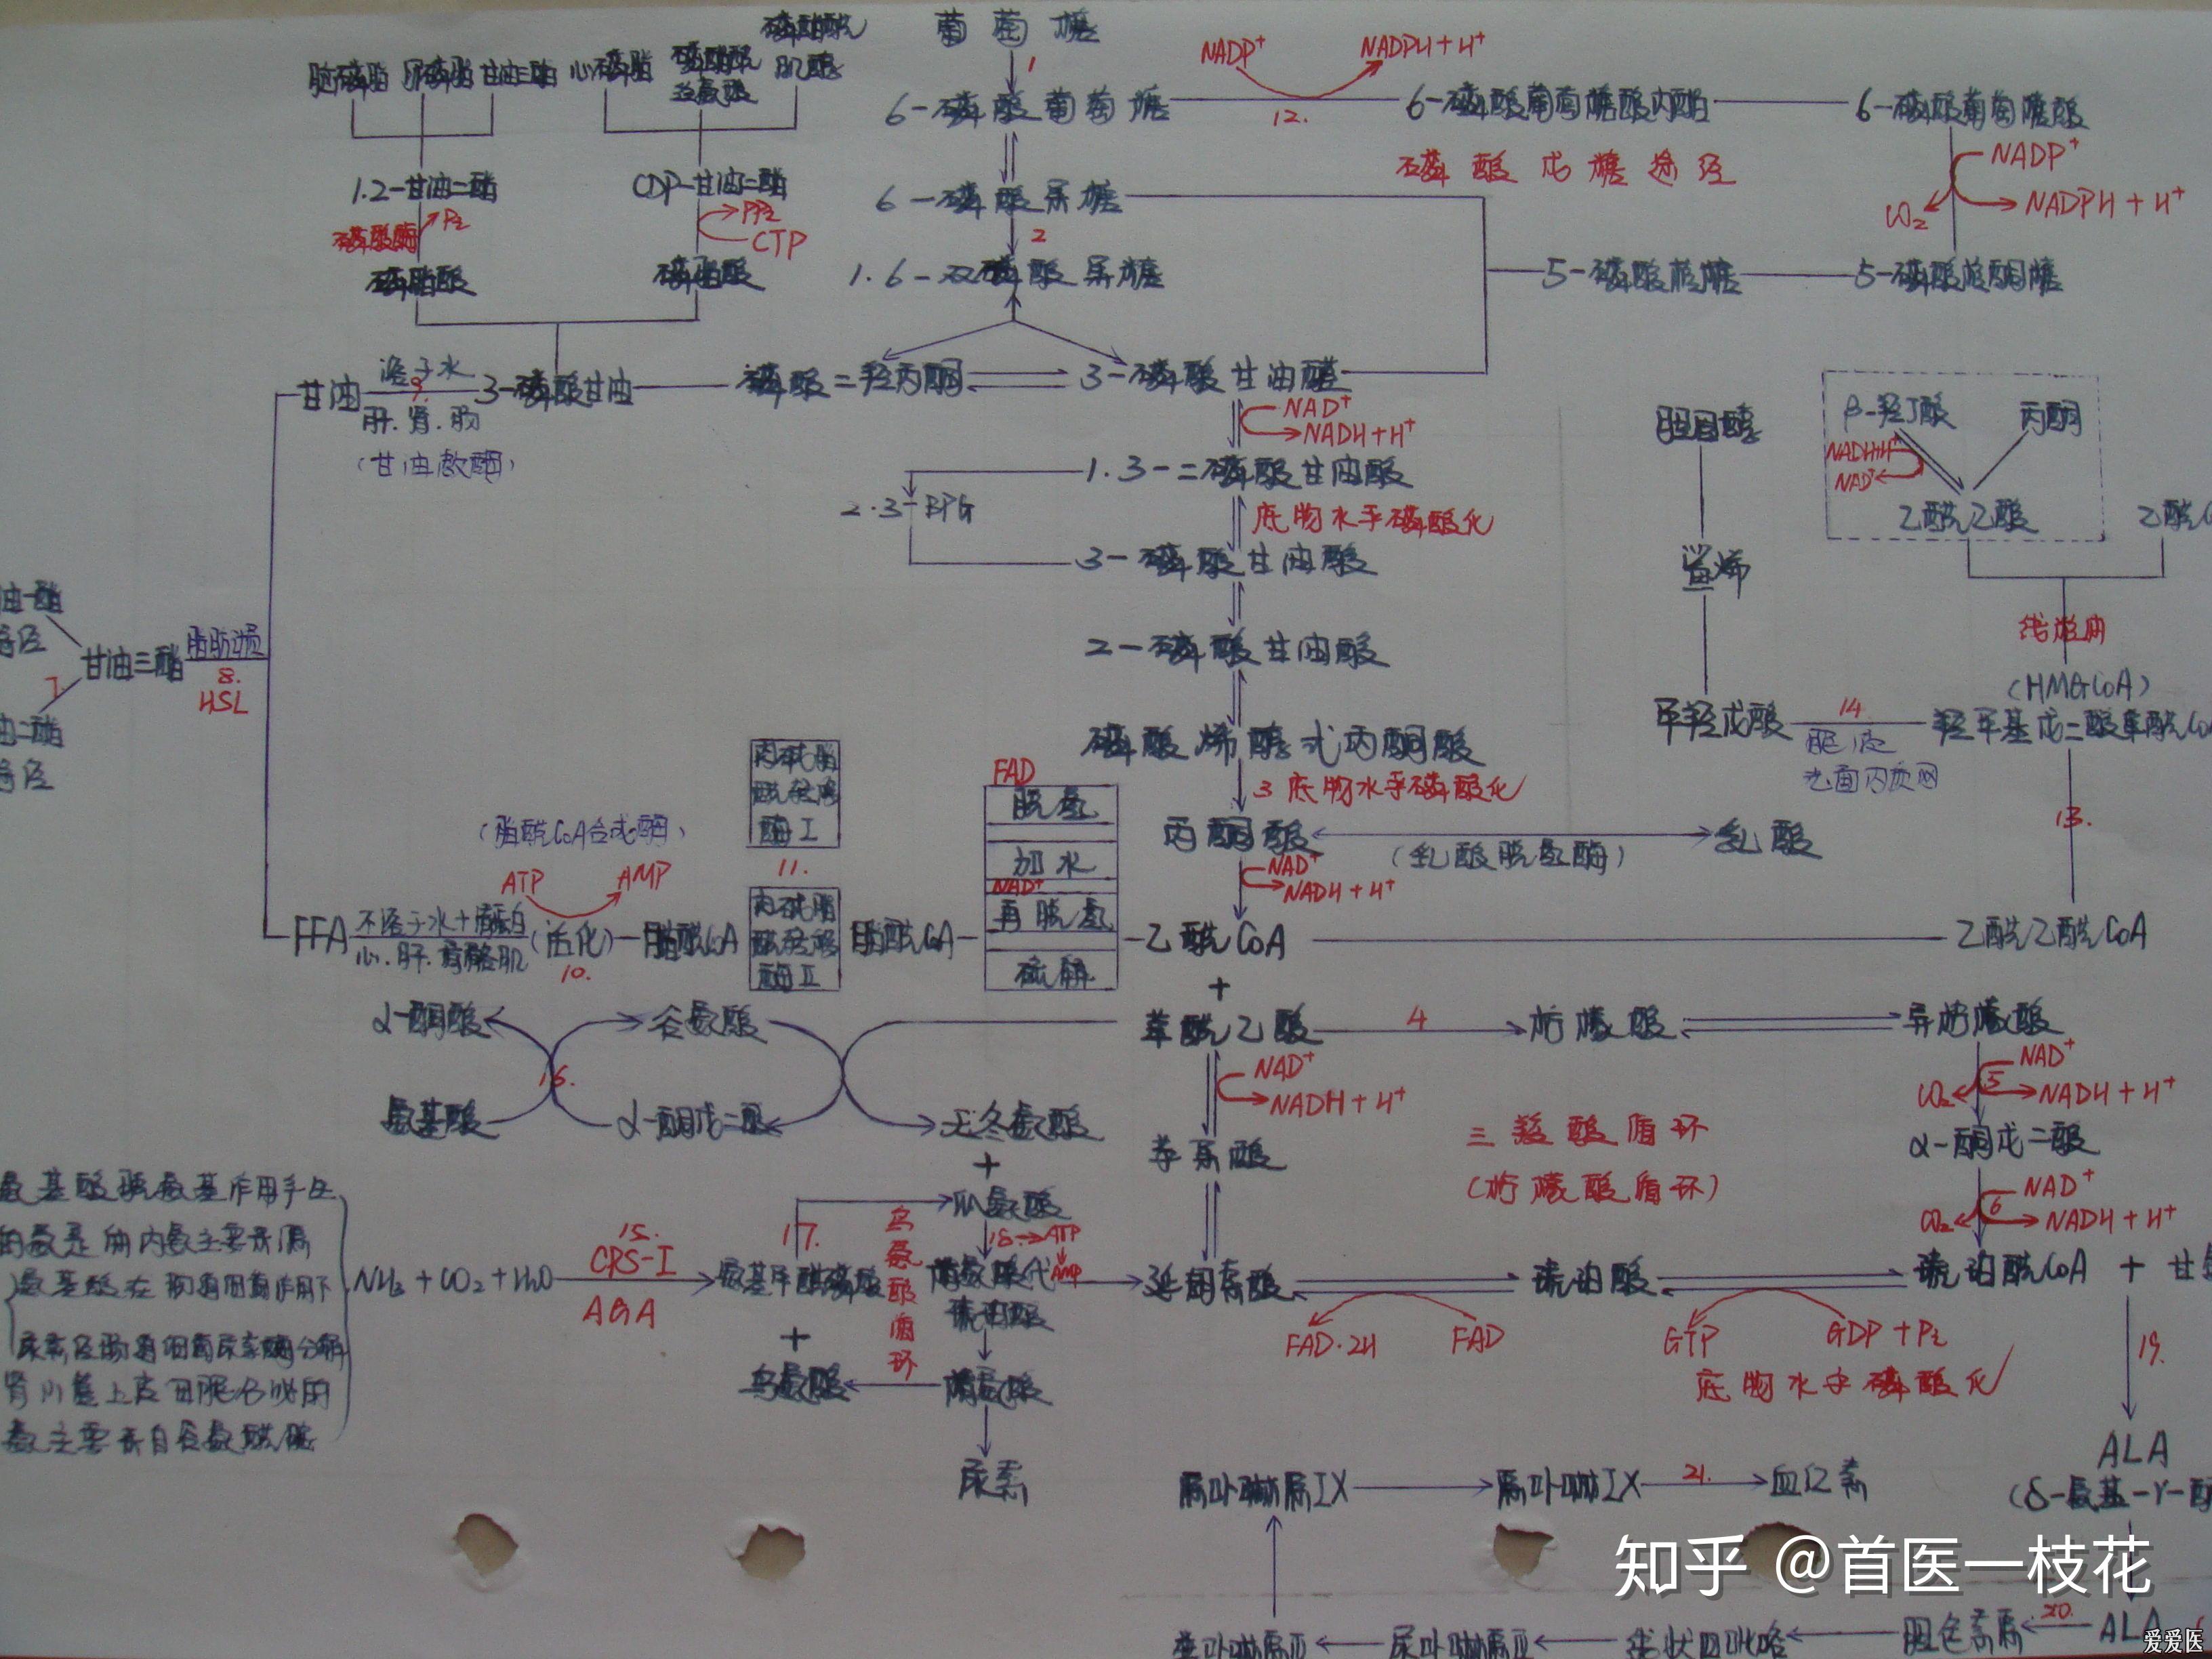 葡萄糖
1
NADP⁺
NADPH + H⁺
脑磷脂
卵磷脂
甘油三酯
心磷脂
磷脂酰
肌醇
6-磷酸葡萄糖
12.
6-磷酸葡萄糖酸内酯
6-磷酸葡萄糖酸
磷酸戊糖途径
NADP⁺
NADPH + H⁺
CO₂
1.2-甘油二酯
CDP-甘油二酯
6-磷酸果糖
磷酸酶
Pi
PPi
CTP
2
磷脂酸
磷脂酸
1.6-双磷酸果糖
5-磷酸核糖
5-磷酸核酮糖
甘油
溶于水
9.
肝.肾.肠
(甘油激酶)
3-磷酸甘油
磷酸二羟丙酮
3-磷酸甘油醛
NAD⁺
NADH + H⁺
胆固醇
β-羟丁酸
丙酮
NADH+H⁺
NAD⁺
乙酰乙酸
1.3-二磷酸甘油酸
2.3-BPG
底物水平磷酸化
3-磷酸甘油酸
鲨烯
2-磷酸甘油酸
甘油三酯
脂肪动员
8.
HSL
7
(HMGCoA)
甲羟戊酸
14.
胞液
光面内质网
羟甲基戊二酸单酰CoA
13.
磷酸烯醇式丙酮酸
3 底物水平磷酸化
丙酮酸
(乳酸脱氢酶)
乳酸
NAD⁺
NADH + H⁺
(脂酰CoA合成酶)
ATP
AMP
肉碱脂
酰转移
酶I
11.
肉碱脂
酰转移
酶II
FAD
脱氢
加水
NAD⁺
再脱氢
硫解
FFA
不溶于水+清蛋白
心.肝.骨骼肌
(活化)
10.
脂酰CoA
脂酰CoA
乙酰CoA
乙酰乙酰CoA
+
α-酮酸
谷氨酸
草酰乙酸
4
柠檬酸
异柠檬酸
16.
氨基酸
α-酮戊二酸
天冬氨酸
NAD⁺
NADH + H⁺
CO₂
5
NAD⁺
NADH + H⁺
三羧酸循环
(柠檬酸循环)
α-酮戊二酸
苹果酸
CO₂
6
NAD⁺
NADH + H⁺
+
瓜氨酸
氨基酸脱氨基作用产生
的氨是体内氨主要来源
氨基酸在肠道细菌作用下
尿素经肠道细菌尿素酶分解
肾小管上皮细胞分泌的
氨主要来自谷氨酰胺
NH₃ + CO₂ + H₂O
15.
CPS-I
AGA
氨基甲酰磷酸
17.
鸟氨酸循环
18.
ATP
AMP
精氨酸代
琥珀酸
延胡索酸
琥珀酸
琥珀酰CoA
+
FAD·2H
FAD
GTP
GDP + Pi
底物水平磷酸化
19.
+
鸟氨酸
精氨酸
尿素
ALA
原卟啉原IX
原卟啉IX
21.
血红素
知乎 @首医一枝花
尿卟啉原III
线状四吡咯
胆色素原
20.
ALA
爱爱医